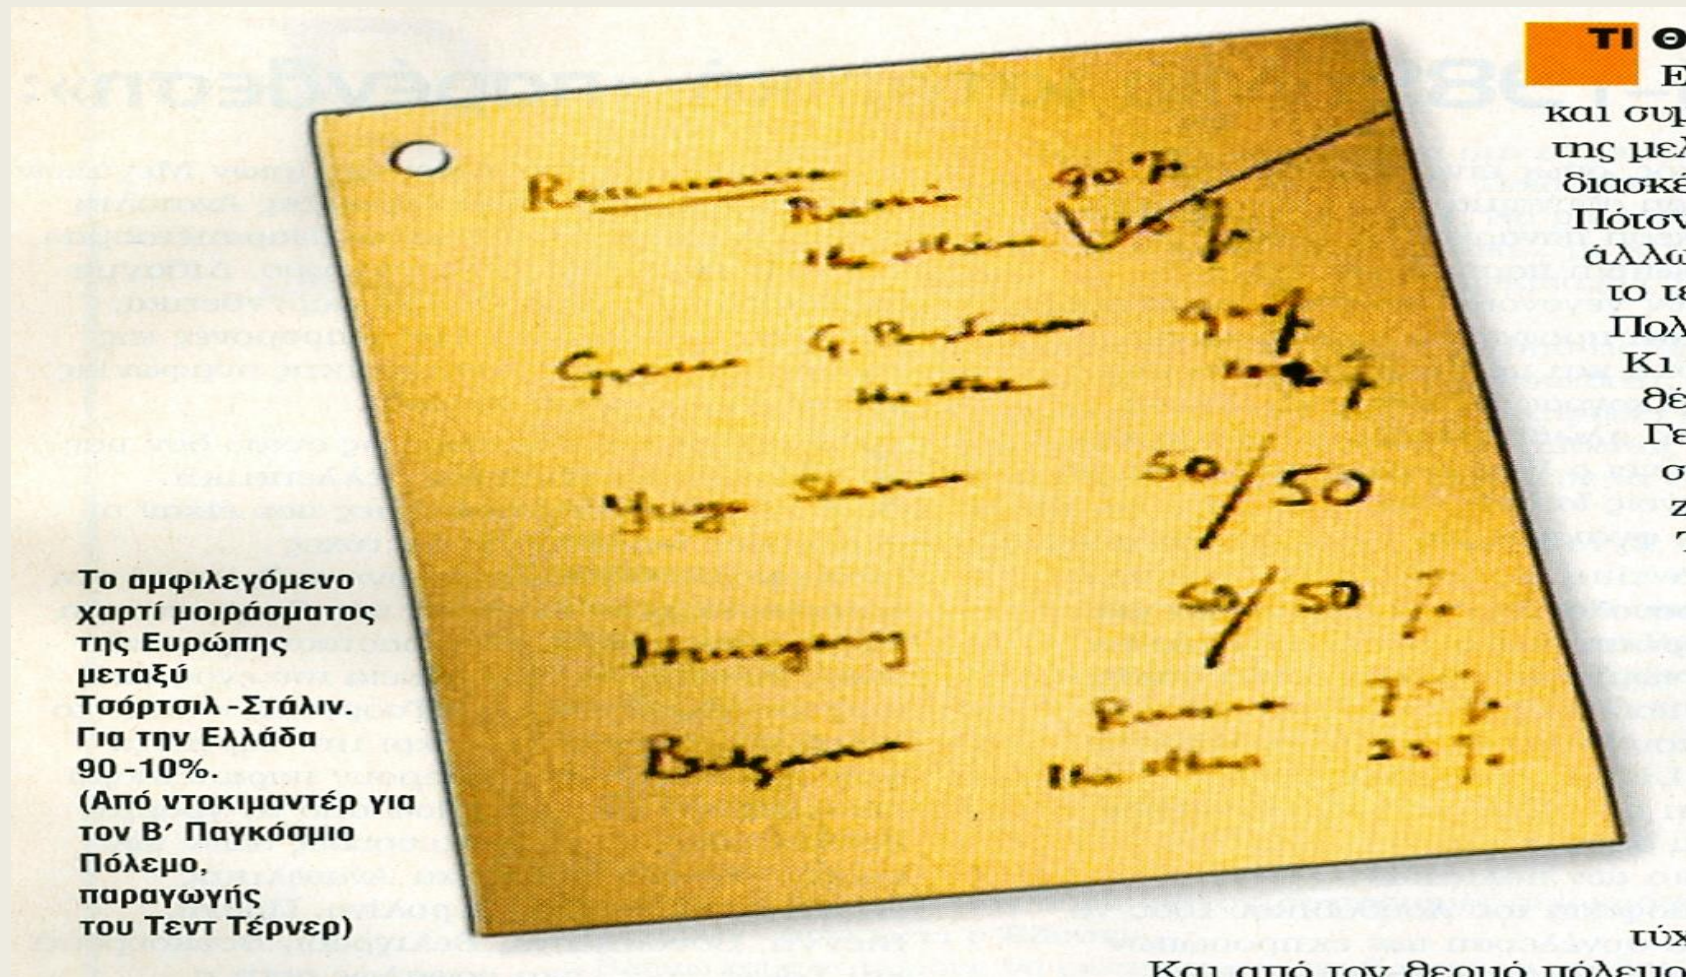 Roumania
Russia 90%
The others 10%
Greece G. Britain 90%
The others 10%
Yugo Slavia 50/50
Hungary 50/50 %
Bulgaria Russia 75%
The others 25%
Το αμφιλεγόμενο
χαρτί μοιράσματος
της Ευρώπης
μεταξύ
Τσόρτσιλ - Στάλιν.
Για την Ελλάδα
90 - 10%.
(Από ντοκιμαντέρ για
τον Β′ Παγκόσμιο
Πόλεμο,
παραγωγής
του Τεντ Τέρνερ)
ΤΙ
και
της
το
Κι
Και από τον θερμό πόλεμο